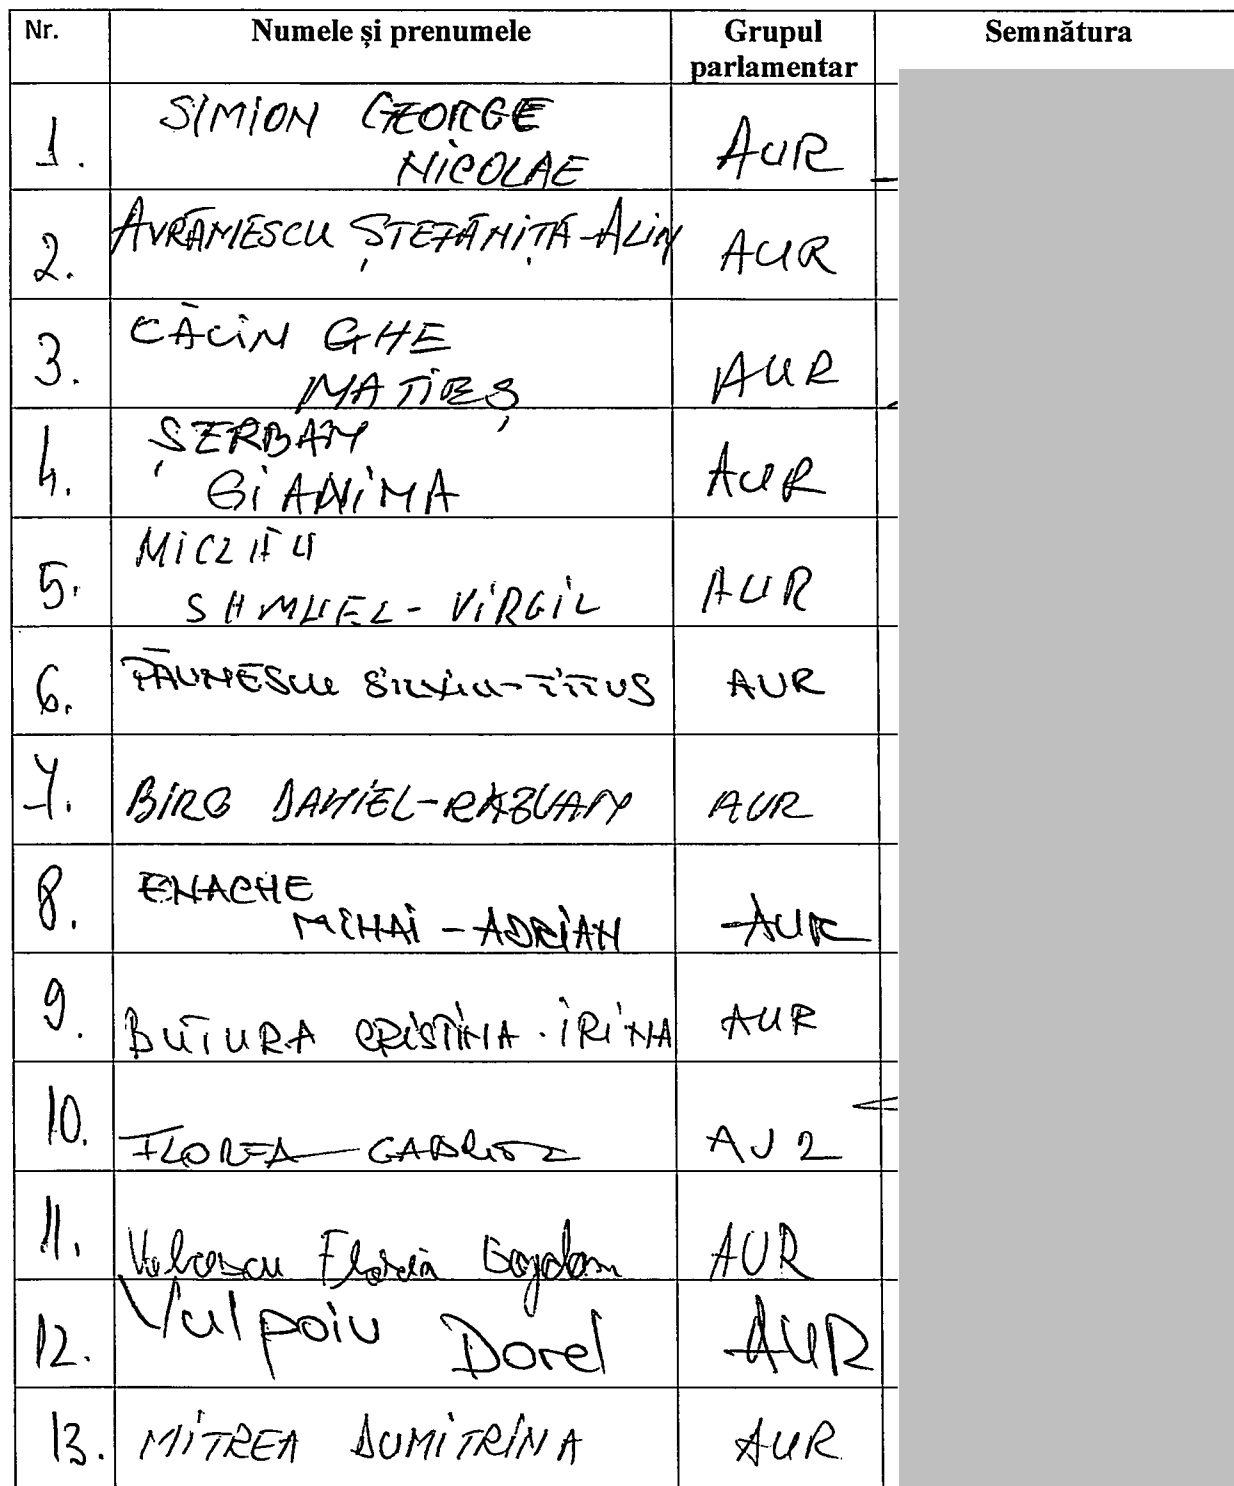 Nr. Numele și prenumele Grupul parlamentar Semnătura
1. SIMION GEORGE
NICOLAE AUR
2. AVRĂMESCU ȘTEFĂNIȚĂ-ALIN AUR
3. GHE AUR
4. ȘERBAN
GIANINA AUR
5.
SAMUEL-VIRGIL AUR
6. PĂUNESCU SILVIU-TITUS AUR
7. BIRO DANIEL-RĂZVAN AUR
8. ENACHE
MIHAI-ADRIAN AUR
9. BUTURA CRISTINA-IRINA AUR
10. FLOREA GABRIEL AUR
11. Florin Bogdan AUR
12. Vulpoiu Dorel AUR
13. MITREA DUMITRINA AUR